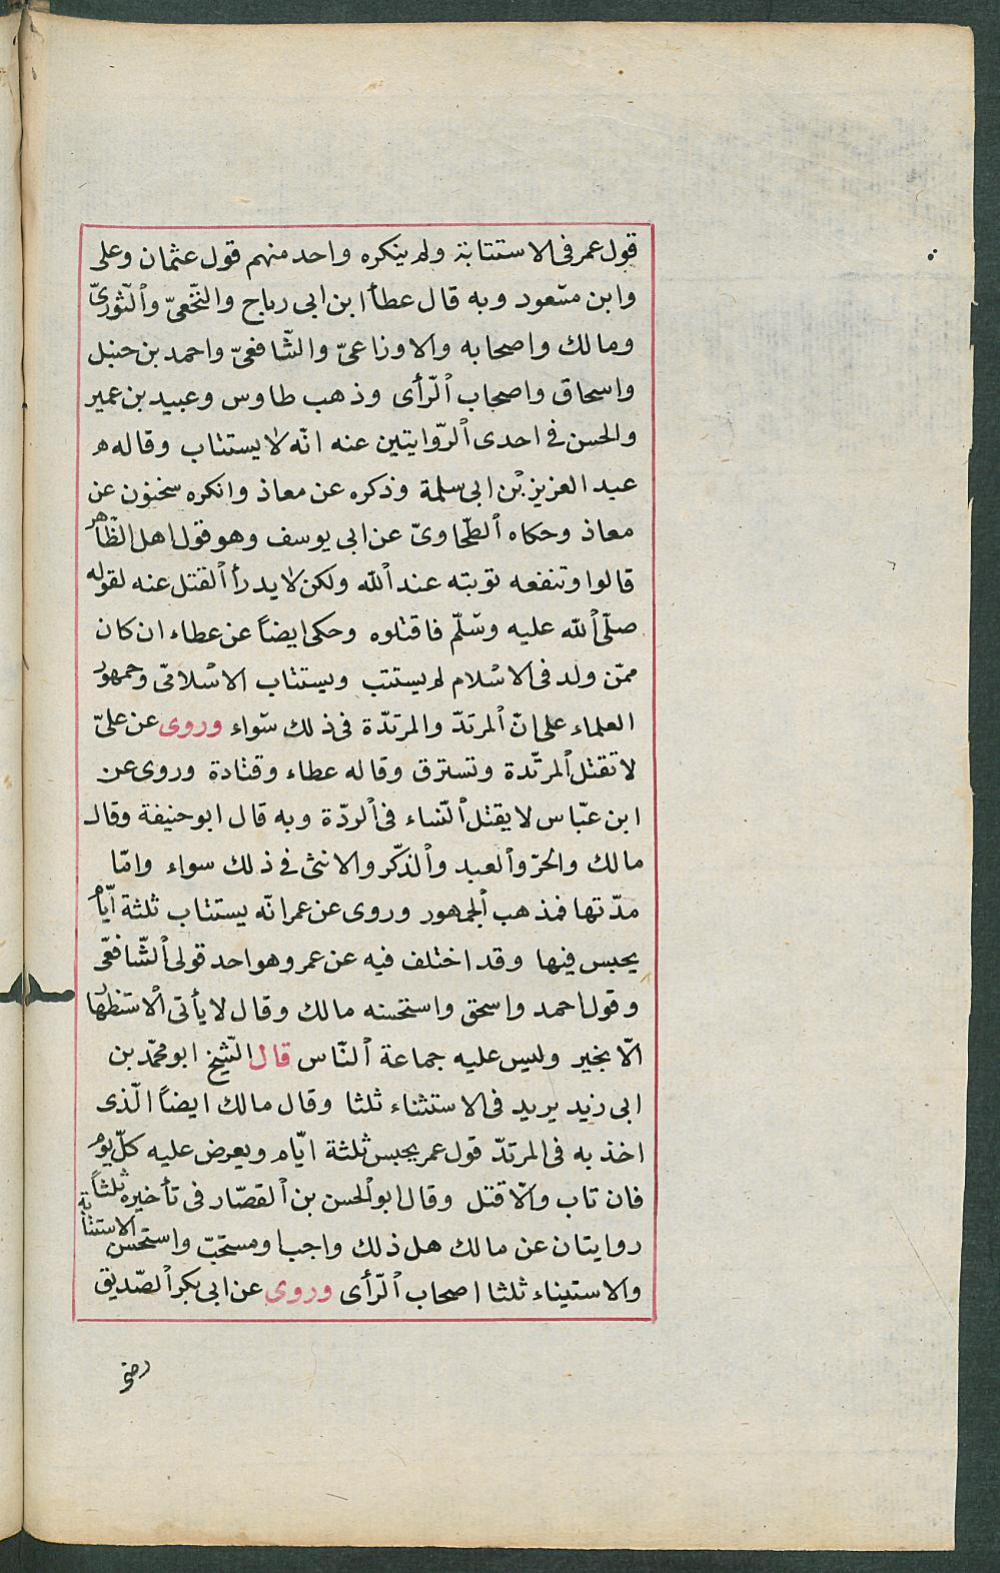 قول عمر فى الاستتابة ولم ينكره واحد منهم قول عثمان وعلى
وابن مسعود وبه قال عطأ ابن ابى رباح والنّخعىّ وٱلثّورىّ
ومالك واصحابه والاوزاعىّ والشّافعىّ واحمد بن حنبل
واسحاق واصحاب ٱلرّأى وذهب طاوس وعبيد بن عمير
والحسن فى احدى ٱلرّوايتين عنه انّه لا يستتاب وقاله
عبد العزيز بْن ابى سلمة وذكره عن معاذ وانكره سحنون عن
معاذ وحكاه ٱلطّحاوىّ عن ابى يوسف وهو قول اهل الظّاهر
قالوا وتنفعه توبته عند ٱللّه ولكن لا يدرأ ٱلقتل عنه لقوله
صلّى ٱللّه عليه وسّلّم فاقتلوه وحكى ايضاً عن عطاء ان كان
ممّن ولد فى الاسْلام لم يستتب ويستتاب الاسْلامىّ وجمهور
العلماء على انّ ٱلمرتدّ والمرتدّة فى ذلك سَواء وروى عن علىّ
لا تقتل ٱلمرتّدة وتسترق وقاله عطاء وقتادة وروى عن
ابن عبّاس لا يقتل ٱلنّساء فى ٱلردّة وبه قال ابو حنيفة وقال
مالك والحرّ وٱلعبد وٱلذّكر والانثى فى ذلك سواء وامّا
مدّتها فمذهب ٱلجمهور وروى عن عمر انّه يستتاب ثلثة ايّام
يحبس فيها وقد اختلف فيه عن عمر وهو احد قولى ٱلشّافعىّ
وقول احمد واسحق واستحسنه مالك وقال لا يأتى ٱلاستظهار
الّا بخير وليس عليه جماعة ٱلنّاس قال الشّيخ ابو محمّد بن
ابى زيد يريد فى الاستثناء ثلثا وقال مالك ايضاً الّذى
اخذ به فى المرتدّ قول عمر يحبس ثلثة ايّام ويعرض عليه كلّ يوم
فان تاب والّا قتل وقال ابو ٱلحسن بن ٱلقصّار فى تأخيره ثلثاً
روايتان عن مالك هل ذلك واجب او مستحبّ واستحسن الاستتابة
والاستيناء ثلثا اصحاب ٱلرّأى وروى عن ابى بكر ٱلصّديق
رضى